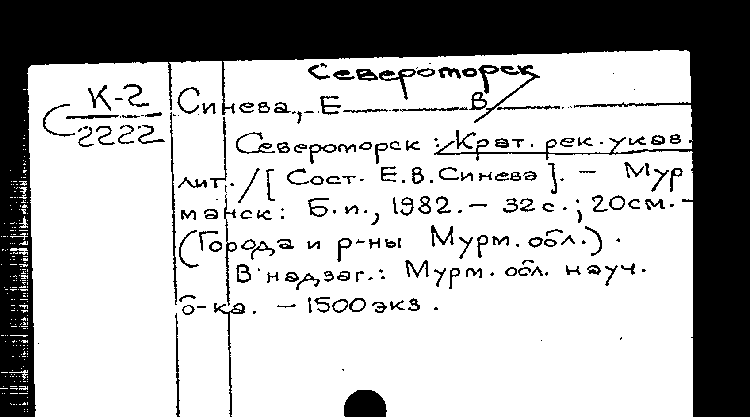 Североморск
К-2
С
2222
Синева, Е В
Североморск : Крат. рек. указ.
лит. / [ Сост. Е.В.Синева ]. – Мур
манск: Б.п., 1982. – 32 с.; 20см. –
(Города и р-ны Мурм. обл.).
В надзаг.: Мурм. обл. науч.
б-ка. – 1500 экз.